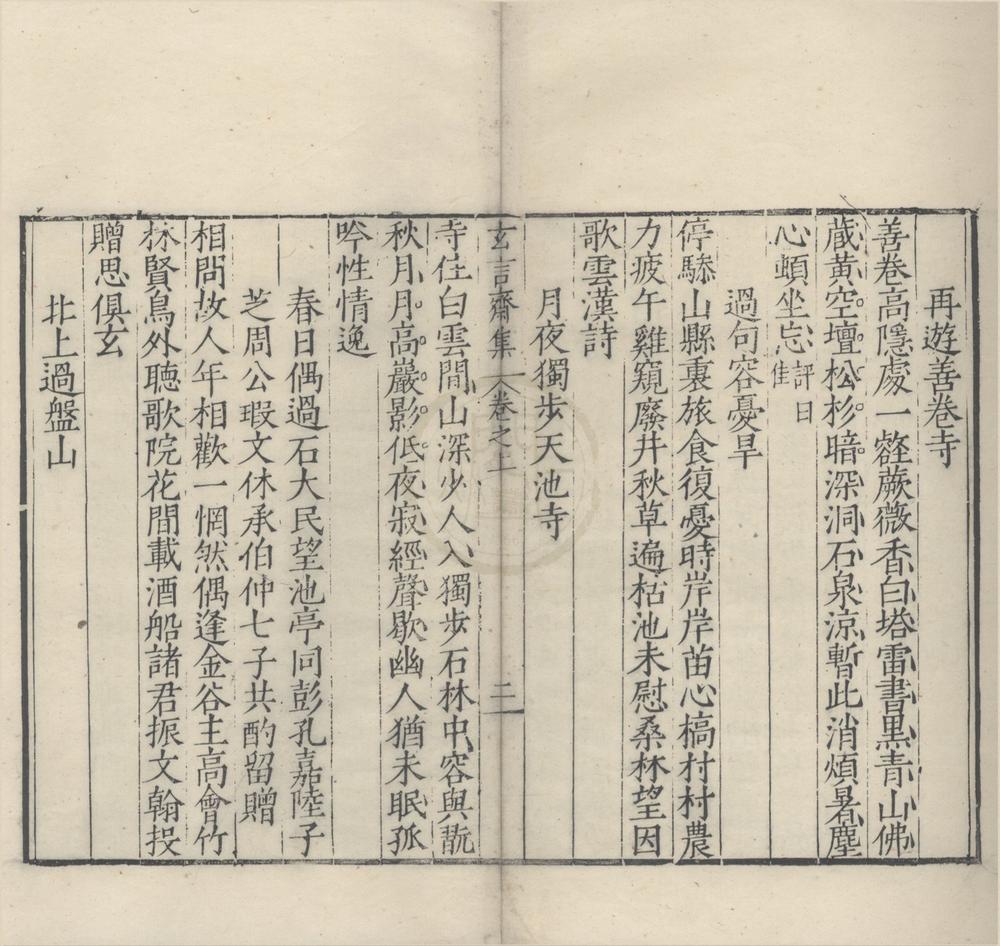 再遊善卷寺
善卷高隱處一壑蕨薇香白塔雷書黒青山佛
藏黄空壇松杉暗深洞石泉涼暫此消煩暑塵
心頓坐忘評曰佳
過句容憂旱
停驂山縣裏旅食復憂時岸岸苗心槁村村農
力疲午雞窺廢井秋草遍枯池未慰桑林望因
歌雲漢詩
月夜獨步天池寺
玄言齋集 卷之上 二
寺住白雲間山深少人入獨步石林中容與翫
秋月月高巖影低夜寂經聲歇幽人猶未眠孤
吟性情逸
春日偶過石大民望池亭同彭孔嘉陸子
芝周公瑕文休承伯仲七子共酌留贈
相問故人年相歡一惘然偶逢金谷主高會竹
林賢鳥外聽歌院花間載酒船諸君振文翰投
贈思俱玄
北上過盤山